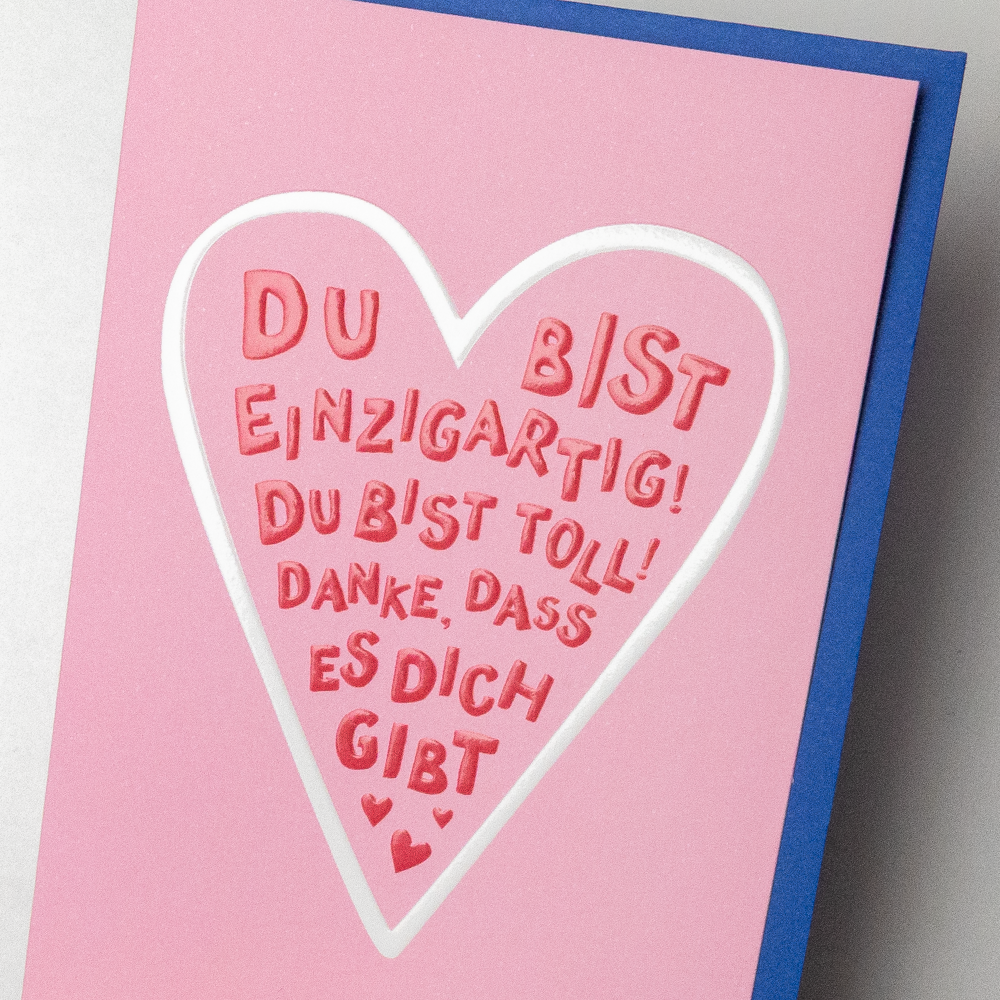 DU BIST
EINZIGARTIG!
DU BIST TOLL!
DANKE, DASS
ES DICH
GIBT